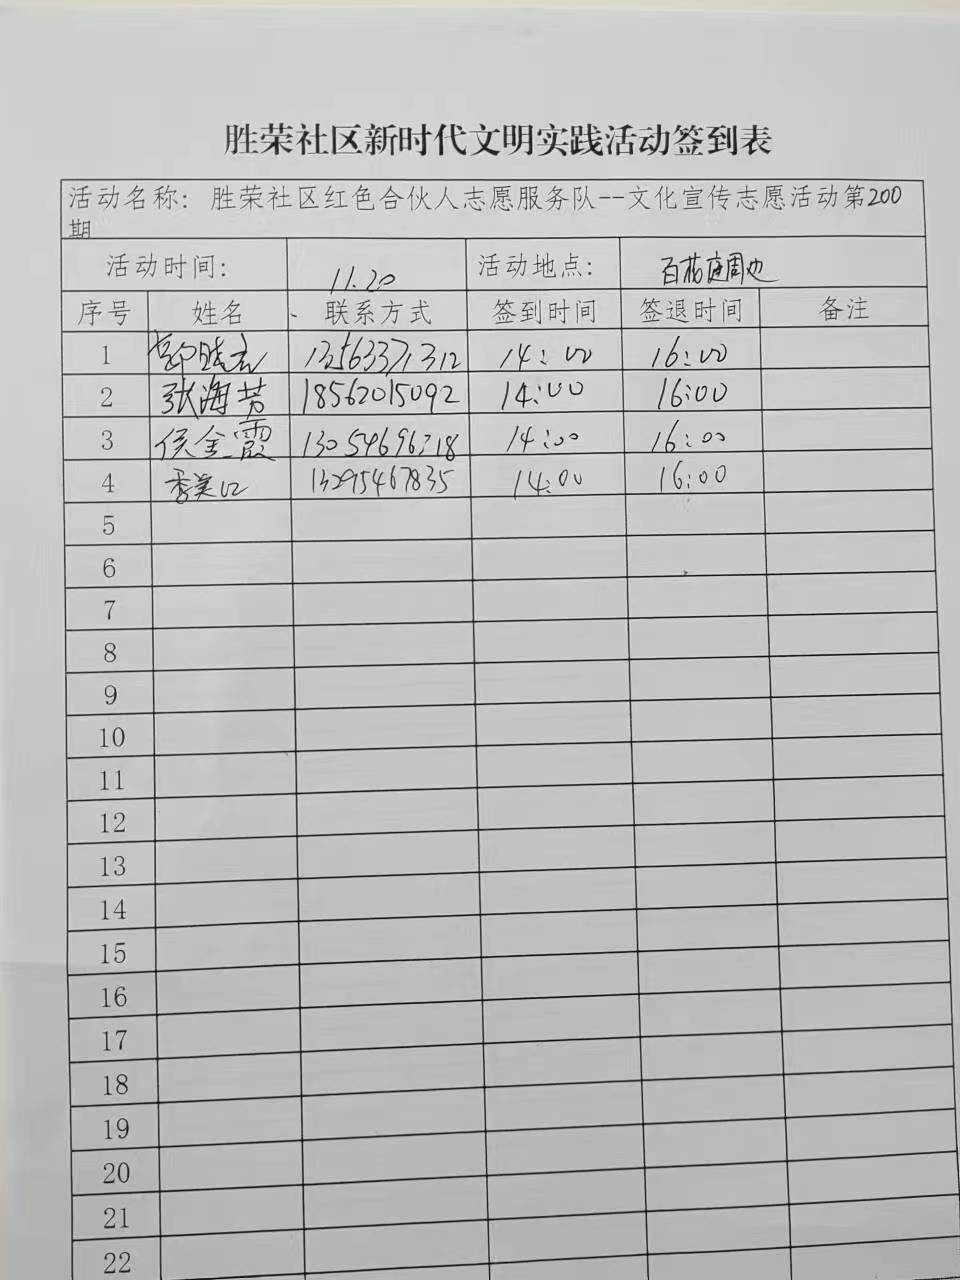 胜荣社区新时代文明实践活动签到表
活动名称: 胜荣社区红色合伙人志愿服务队--文化宣传志愿活动第200
期
活动时间: 11.20 活动地点: 百花庭周边
序号 姓名 联系方式 签到时间 签退时间 备注
1 14:00 16:00
2 张海芳 18562015092 14:00 16:00
3 侯金霞 14:00 16:00
4 13295467835 14:00 16:00
5
6
7
8
9
10
11
12
13
14
15
16
17
18
19
20
21
22